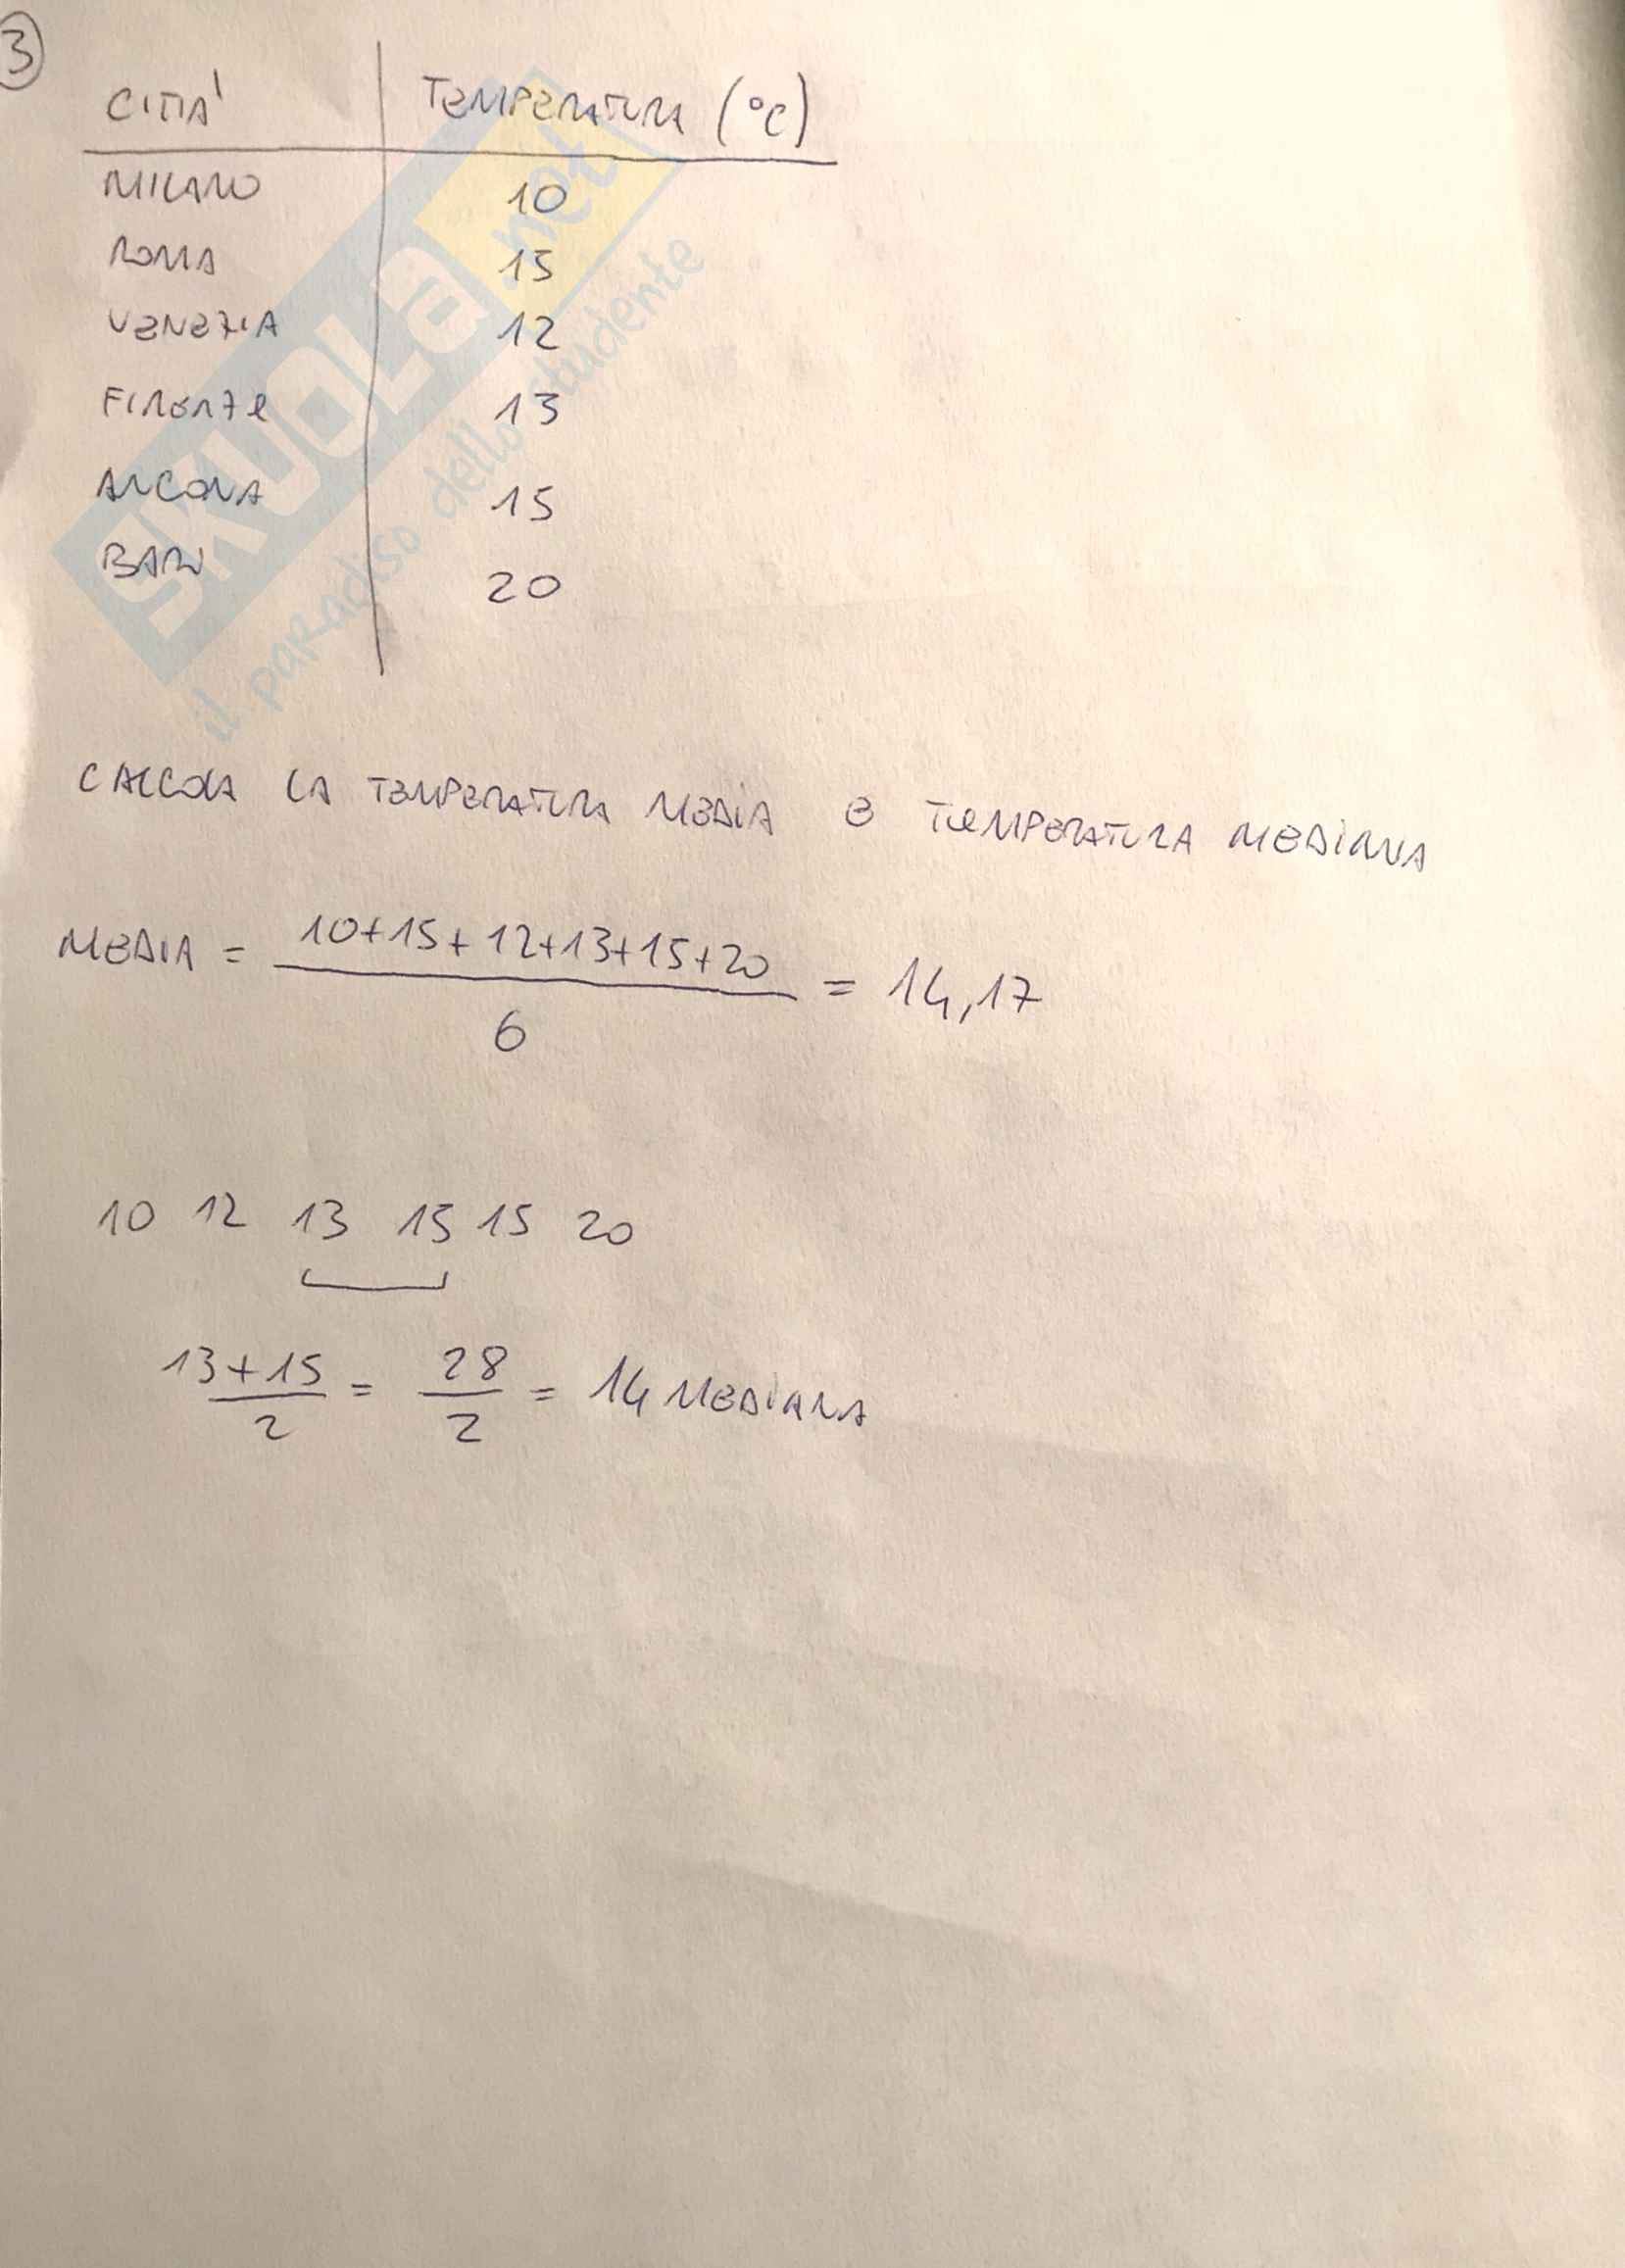 3
CITTA' TEMPERATURA (°C)
MILANO 10
ROMA 15
VENEZIA 12
FIRENZE 13
ANCONA 15
BARI 20
SKUOLA.net
il paradiso dello studente
CALCOLA LA TEMPERATURA MEDIA E TEMPERATURA MEDIANA
MEDIA = 10+15+12+13+15+20 / 6 = 14,17
10 12 13 15 15 20
13+15 / 2 = 28 / 2 = 14 MEDIANA